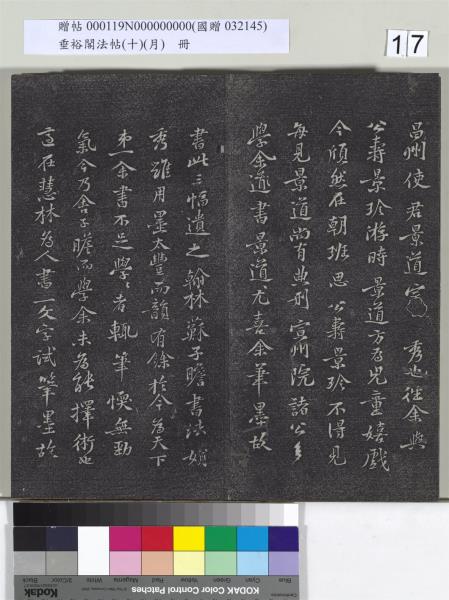 贈帖 000119N000000000(國贈 032145)
垂裕閣法帖(十)(月) 冊
17
昌州使君景道宗秀也往余與
公壽景珍游時景道方為兒童嬉戲
今頎然在朝班思公壽景珍不得見
每見景道尚有典刑宣州院諸公多
學余道書景道尤喜余筆墨故
書此三幅遺之翰林蘇子瞻書法娟
秀雖用墨太豐而韻有餘於今為天下
第一余書不足學學者輒筆愞無勁
氣今乃舍子瞻而學余未為能擇術也
適在慧林為人書一文字試筆墨故
Blue
Cyan
Green
Yellow
Red
Magenta
White
3/Color
Black
KODAK Color Control Patches